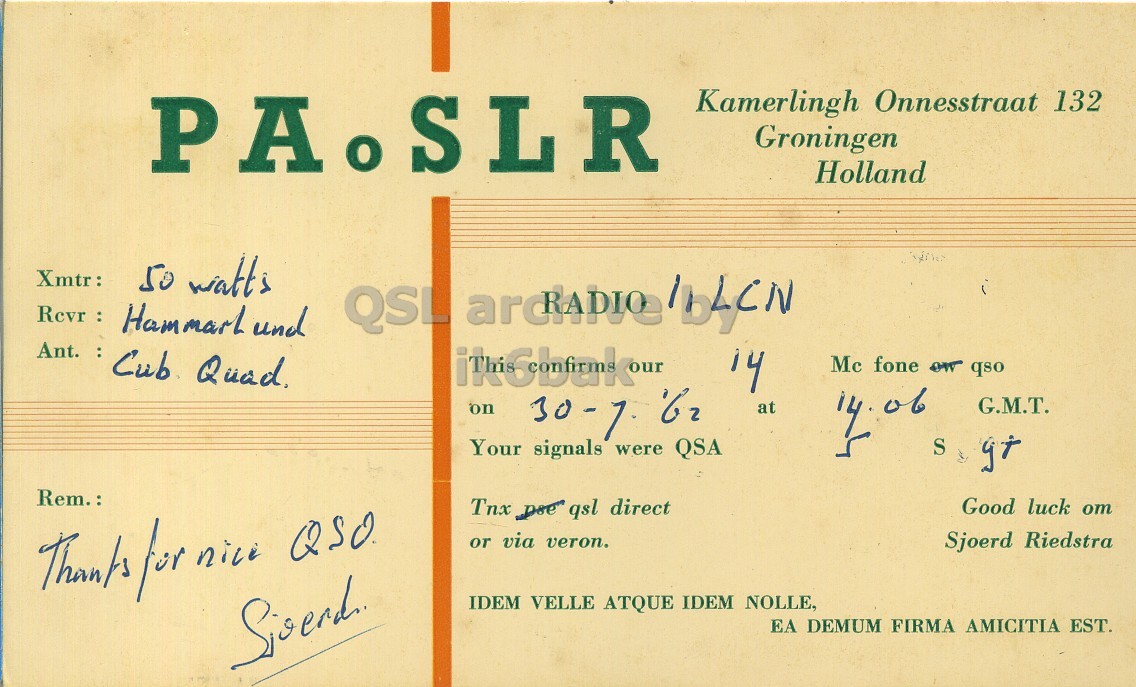 PAoSLR
Kamerlingh Onnesstraat 132
Groningen
Holland
Xmtr: 50 watts
Rcvr: Hammarlund
Ant.: Cub. Quad.
RADIO I1LCN
QSL archive by
ik6bak
This confirms our 14 Mc fone cw qso
on 30-7.'62 at 14.06 G.M.T.
Your signals were QSA 5 S 9+
Rem.:
Thanks for nice QSO.
Sjoerd.
Tnx pse qsl direct
or via veron.
Good luck om
Sjoerd Riedstra
IDEM VELLE ATQUE IDEM NOLLE,
EA DEMUM FIRMA AMICITIA EST.